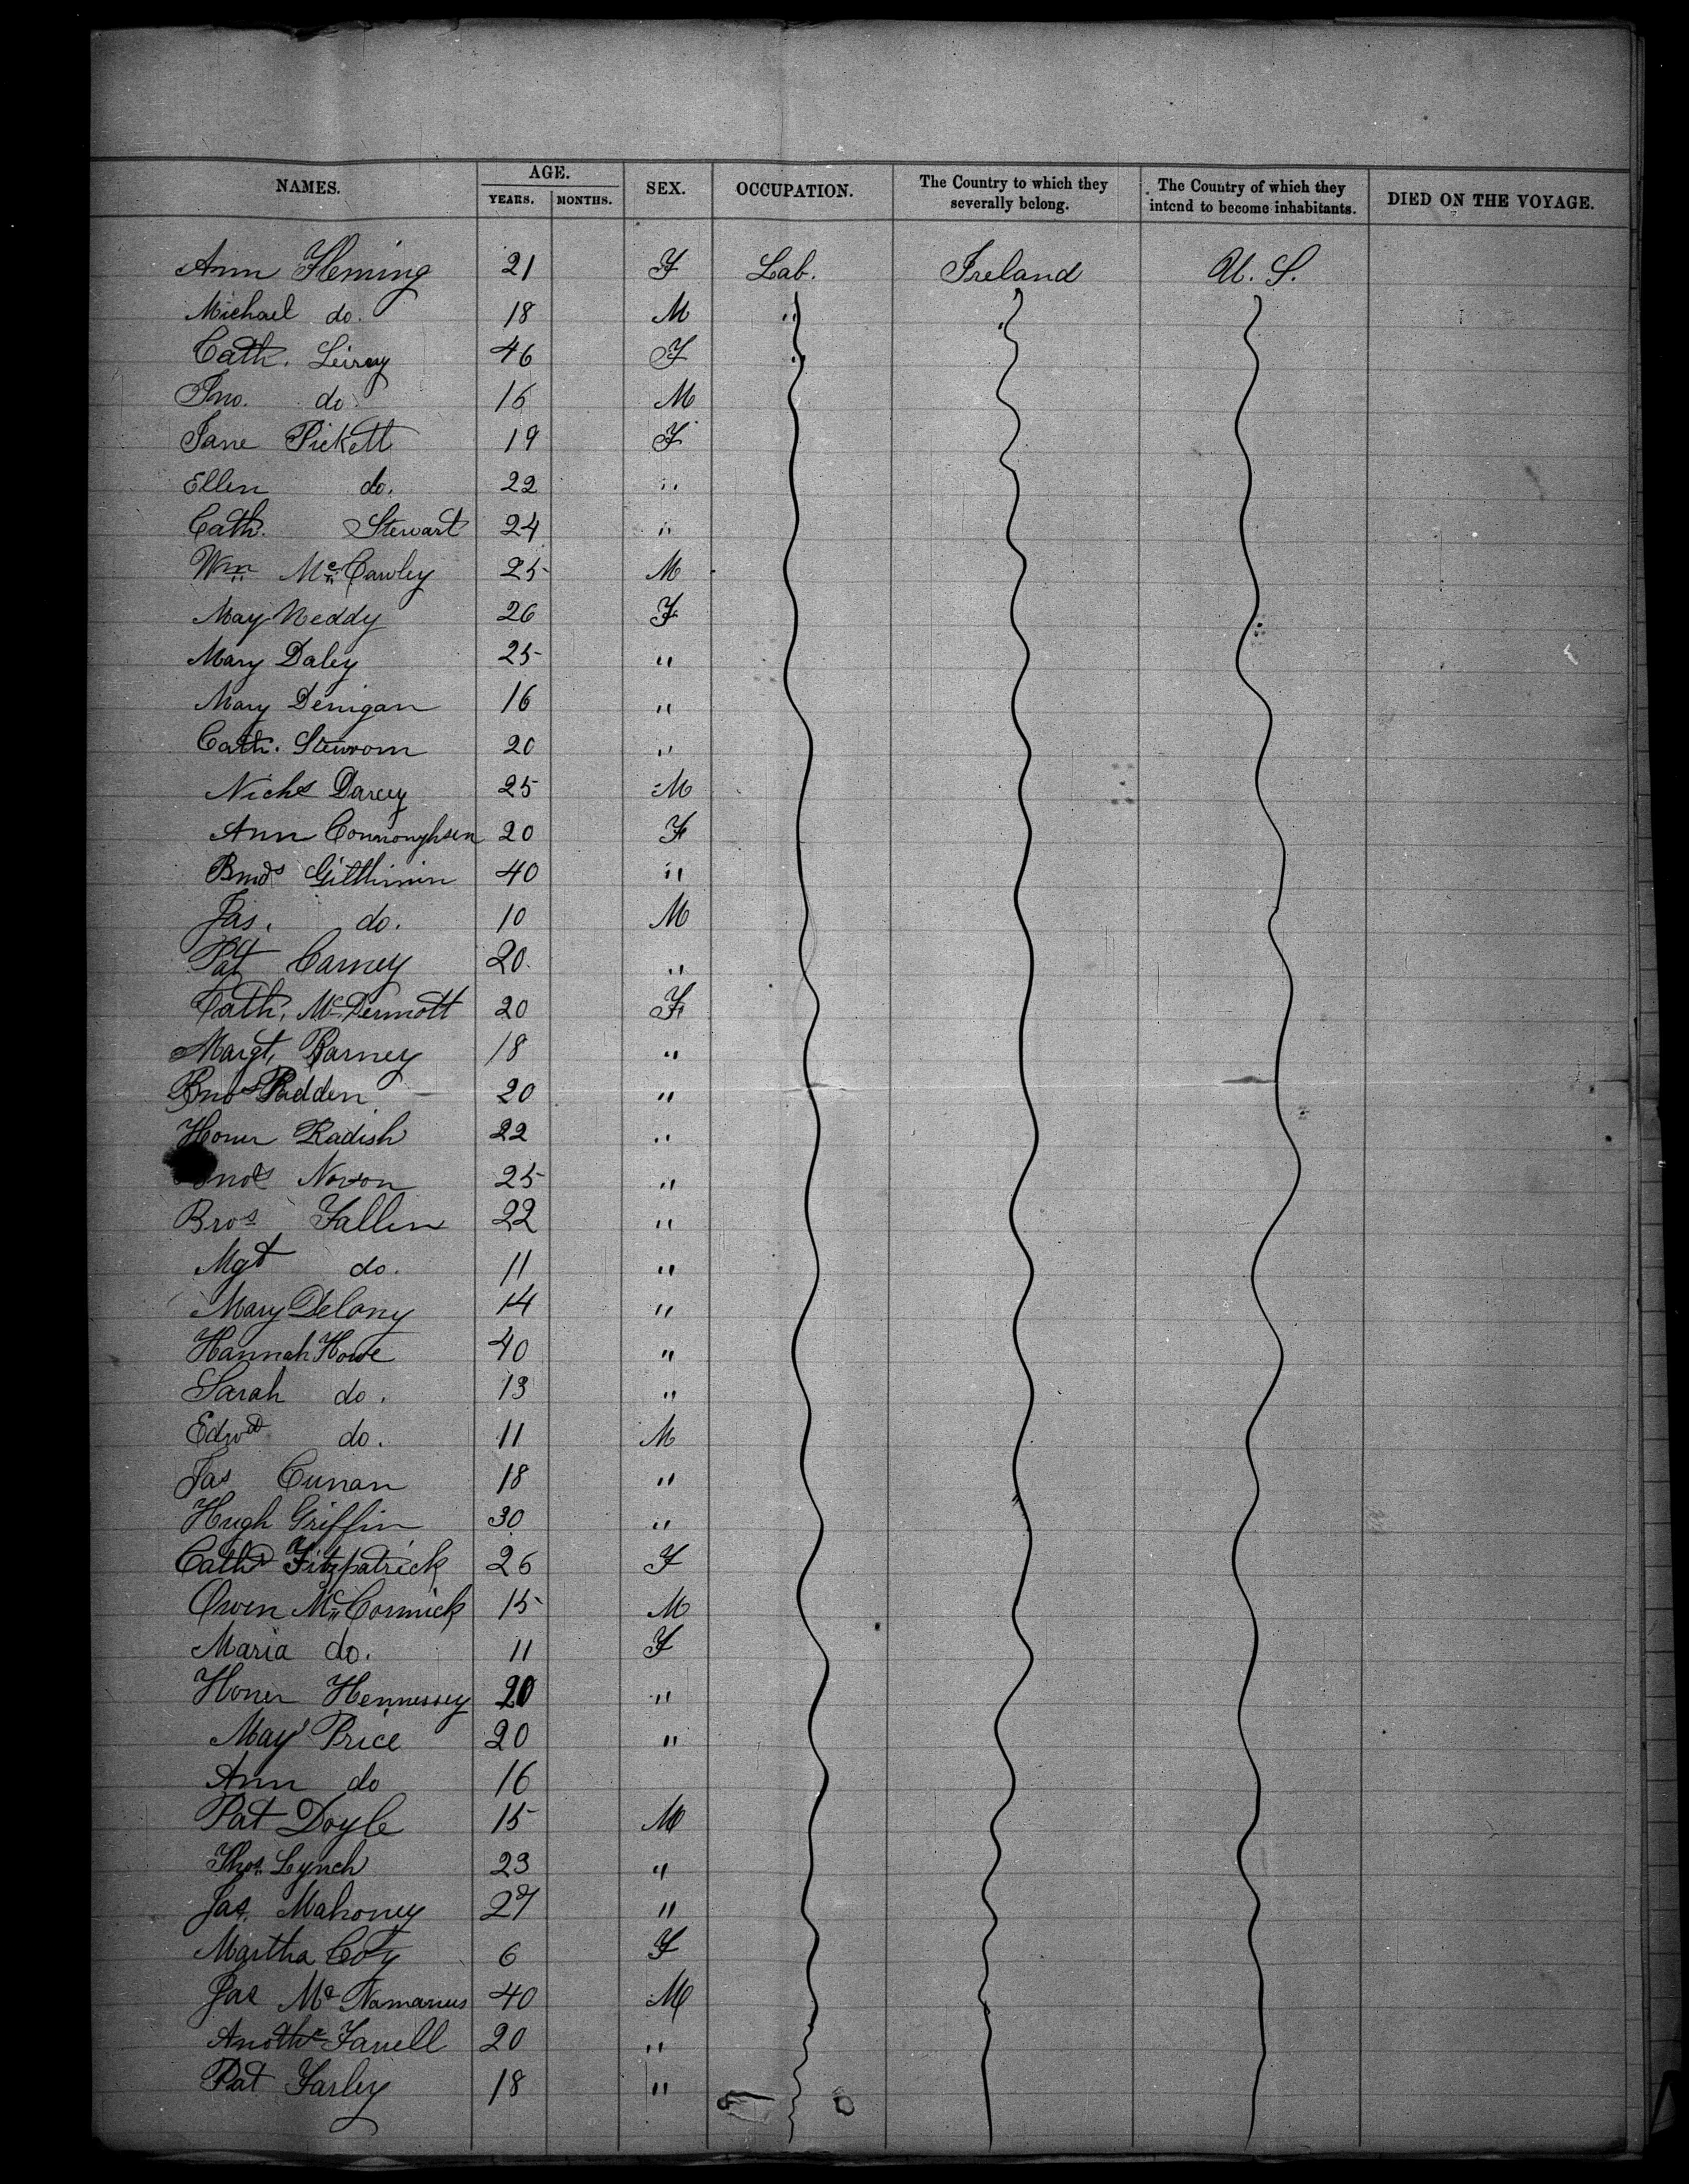 NAMES. AGE. YEARS. MONTHS. SEX. OCCUPATION. The Country to which they severally belong. The Country of which they intend to become inhabitants. DIED ON THE VOYAGE.
Ann Fleming 21 F Lab. Ireland U. S.
Michael do. 18 M " "
Cath. 46 F "
Jno. do 16 M
Jane Pickett 19 F
Ellen do. 22 "
Cath. Stewart 24 "
Wm McCawley 25 M
May Neddy 26 F
Mary Daley 25 "
Mary Denigan 16 "
Cath. 20 "
Nichs Darcy 25 M
Ann 20 F
40 "
Jas. do. 10 M
Pat Carney 20 "
Cath. McDermott 20 F
Margt. Barney 18 "
Padden 20 "
Honer Radish 22 "
25 "
Fallen 22 "
Mgt do. 11 "
Mary Delany 14 "
Hannah Howe 40 "
Sarah do. 13 "
Edwd do. 11 M
Jas Cunan 18 "
Hugh Griffin 30 "
Cath Fitzpatrick 26 F
Owen McCormick 15 M
Maria do. 11 F
Honer Hennessey 20 "
May Price 20 "
Ann do 16
Pat Doyle 15 M
Thos. Lynch 23 "
Jas. Mahoney 27 "
Martha Coty 6 F
Jas McNamarus 40 M
Farrell 20 "
Pat Farley 18 "